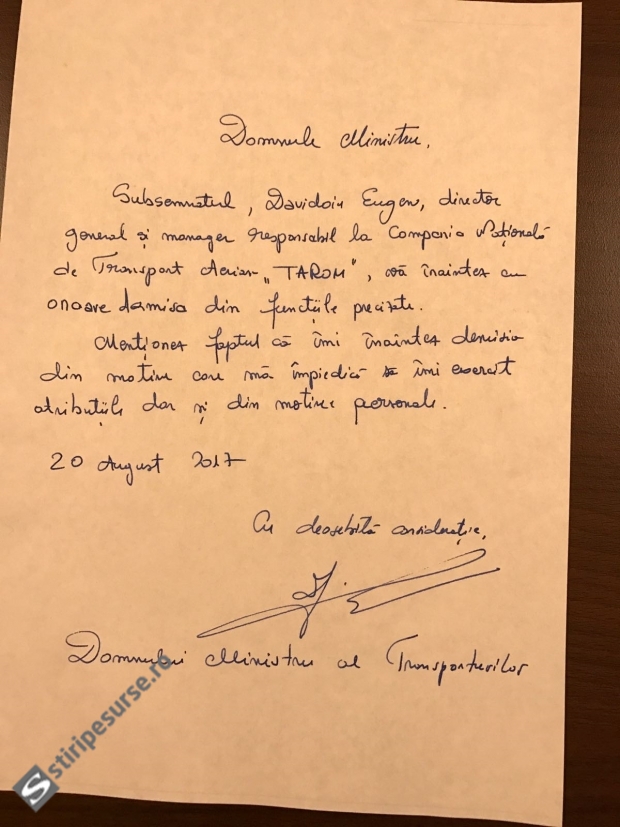 Domnule Ministru,
Subsemnatul, Davidoiu Eugen, director
general și manager responsabil la Compania Națională
de Transport Aerian „TAROM”, vă înaintez cu
onoare demisia din funcțiile precizate.
Menționez faptul că îmi înaintez demisia
din motive care mă împiedică să îmi exercit
atribuțiile dar și din motive personale.
20 August 2017
Cu deosebită considerație,
Domnului Ministru al Transporturilor
S stiripesurse.ro